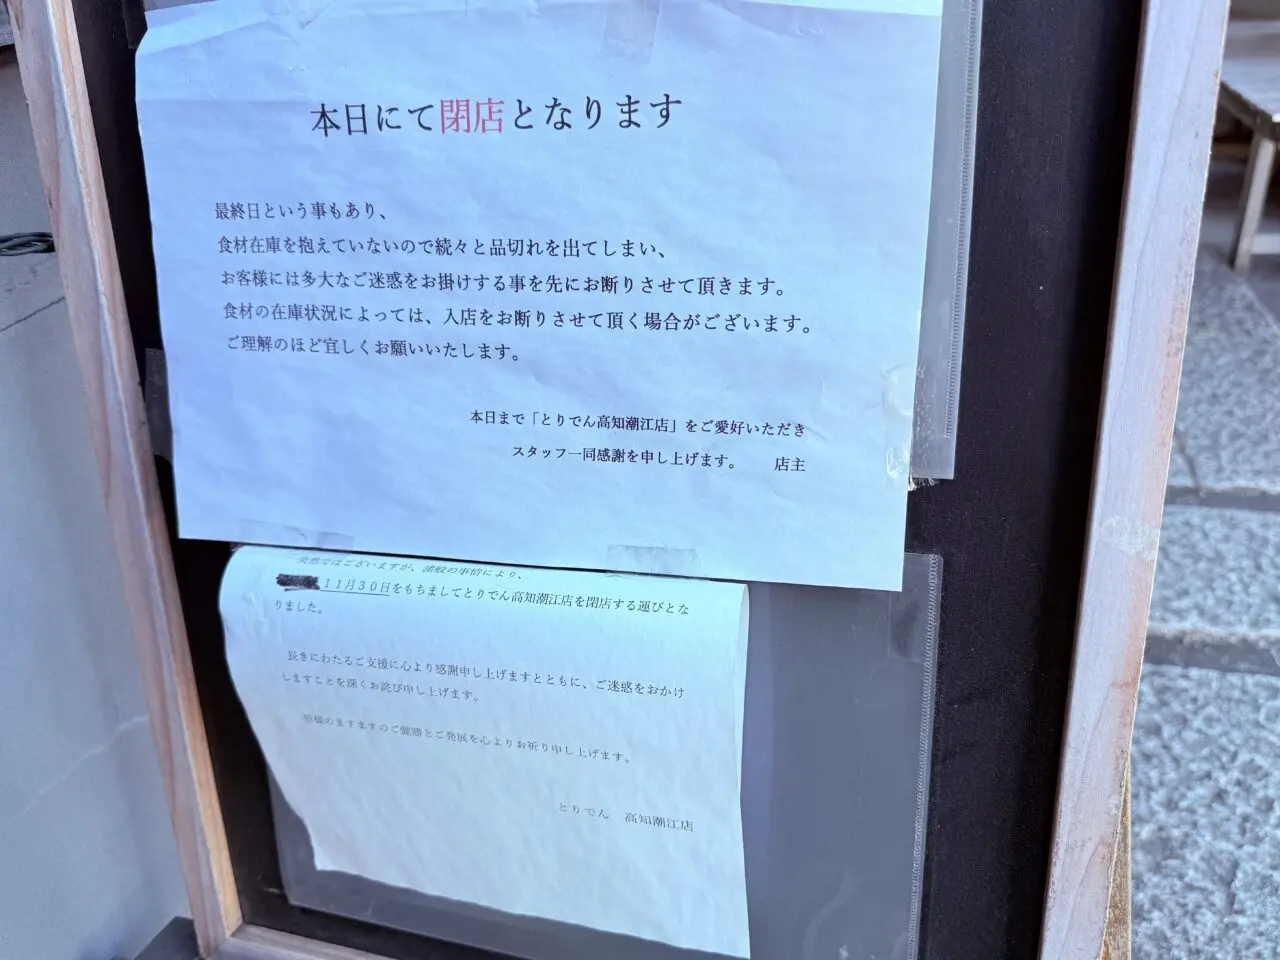 本日にて閉店となります
最終日という事もあり、
食材在庫を抱えていないので続々と品切れを出てしまい、
お客様には多大なご迷惑をお掛けする事を先にお断りさせて頂きます。
食材の在庫状況によっては、入店をお断りさせて頂く場合がございます。
ご理解のほど宜しくお願いいたします。
本日まで「とりでん高知潮江店」をご愛好いただき
スタッフ一同感謝を申し上げます。　　店主
突然ではございますが、諸般の事情により、
11月30日をもちましてとりでん高知潮江店を閉店する運びとな
りました。
長きにわたるご支援に心より感謝申し上げますとともに、ご迷惑をおかけ
しますことを深くお詫び申し上げます。
皆様のますますのご健勝とご発展を心よりお祈り申し上げます。
とりでん　高知潮江店